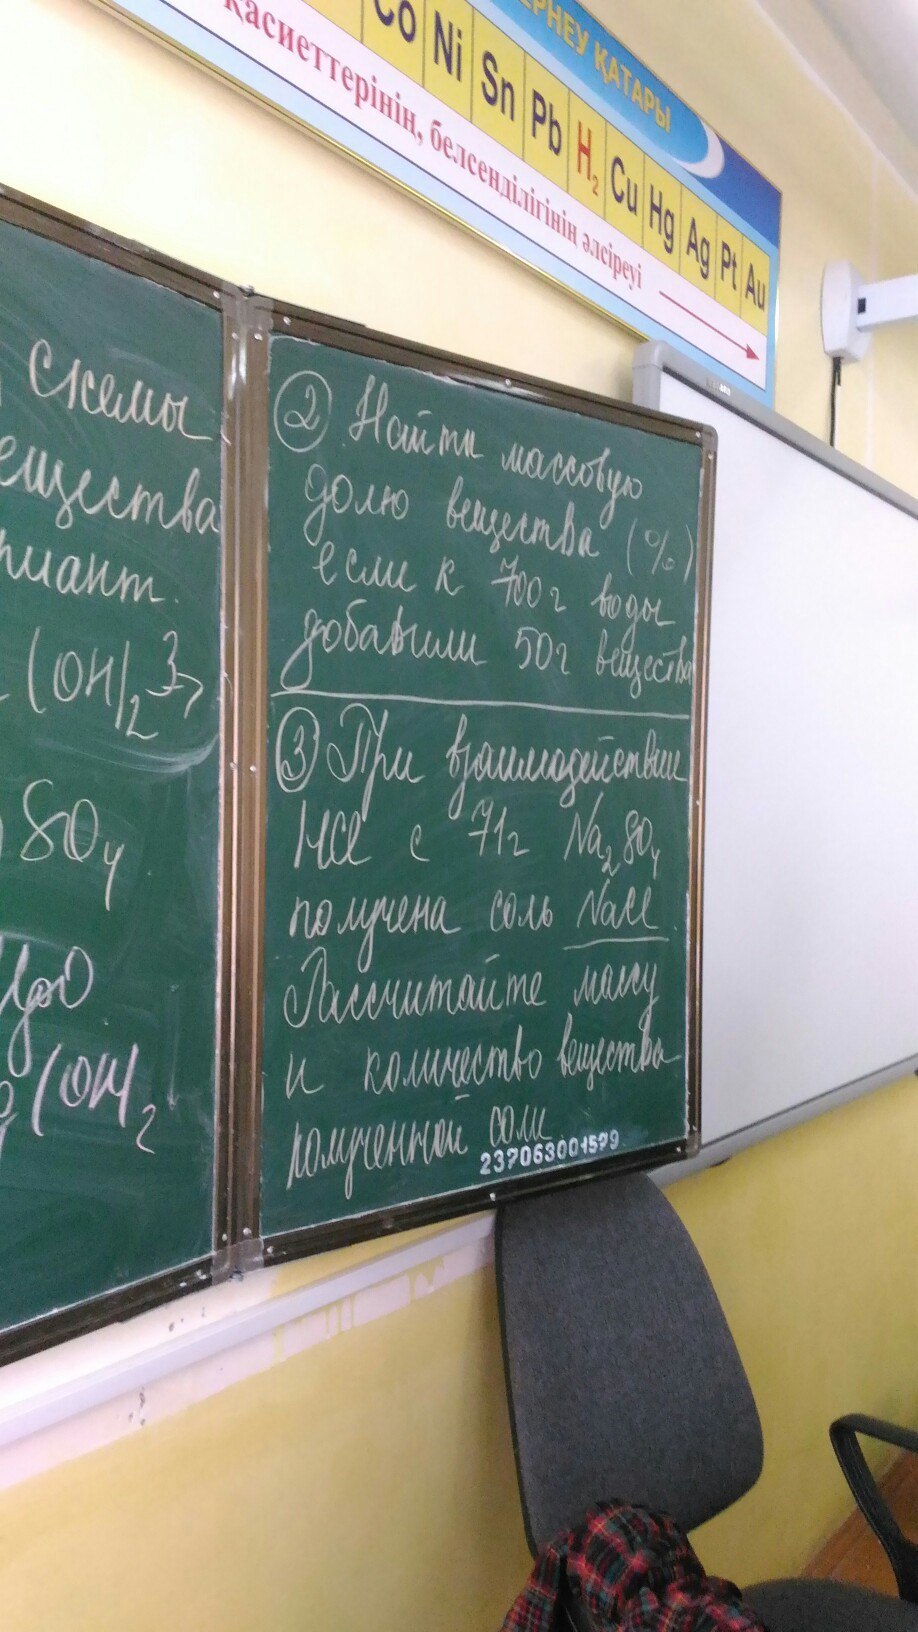 ЕРНЕУ ҚАТАРЫ
Co Ni Sn Pb H₂ Cu Hg Ag Pt Au
қасиеттерінің, белсенділігінің әлсіреуі
схемы
(OH)₂
SO₄
(OH)₂
② Найти массовую
долю вещества (%)
если к 700г воды
добавили 50г вещества
③ При взаимодействии
HCl с 71г Na₂SO₄
получена соль NaCl.
Рассчитайте массу
и количество вещества
полученной соли
237063001579